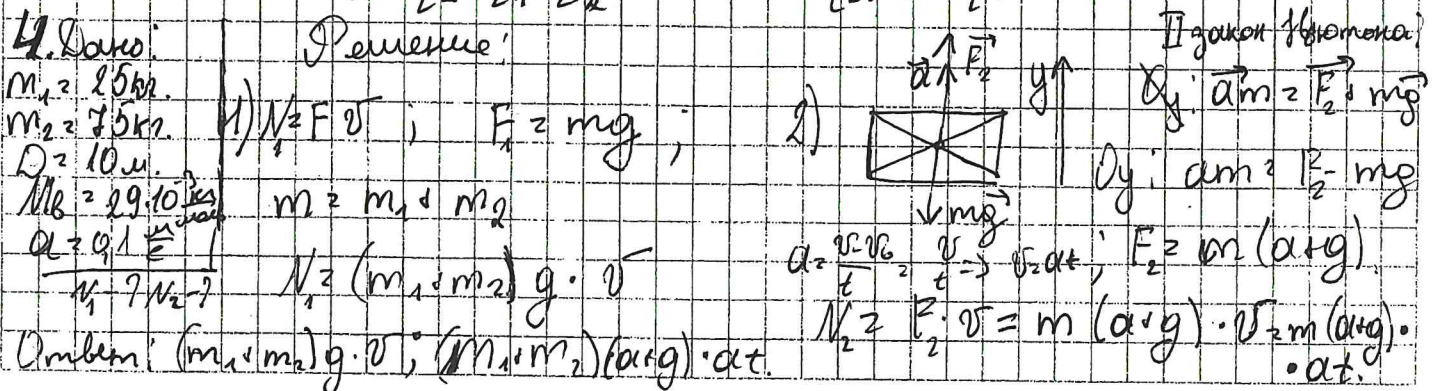 4. Дано:
m₁ = 25 кг.
m₂ = 75 кг.
D = 10 м.
Mв = 29·10⁻³ кг/моль
a = 0,1 м/с
N₁ - ? N₂ - ?
Решение:
1) N₁ = F v ; F₁ = mg ;
m = m₁ + m₂
N₁ = (m₁ + m₂) g · v
2) a⃗ F⃗₂ y
mg⃗
II закон Ньютона:
Oy: a⃗m = F⃗₂ + mg⃗
Oy: am = F₂ - mg
a = (v - v₀)/t = v/t => v = at ; F₂ = m (a+g)
N₂ = F₂ · v = m (a+g) · v = m (a+g) ·
· at.
Ответ: (m₁ + m₂) g · v ; (m₁ + m₂) (a+g) · at.